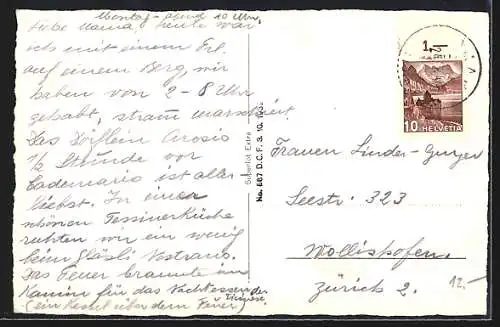 Montag-abend 10 Uhr,
Liebe Mama, heute war
ich mit einem Frl.
auf einem Berg, wir
haben von 2-8 Uhr
gehabt, stram marschiert.
Das Dörflein Arosio
1/2 Stunde vor
Cademario ist aller-
liebst. In einer
schönen Tessinerküche
ruhten wir ein wenig
beim Gläsli Nostrano.
Das Feuer brannte im
Kamin für das Nachtessen der
Tessiner
(ein Kessel über dem Feuer)
Superfot Extra
No. 867 D.C.F. 3. 10.
10 HELVETIA
Frauen Linder-Gujer
Seestr. 323
Wollishofen.
Zürich 2.
12.-